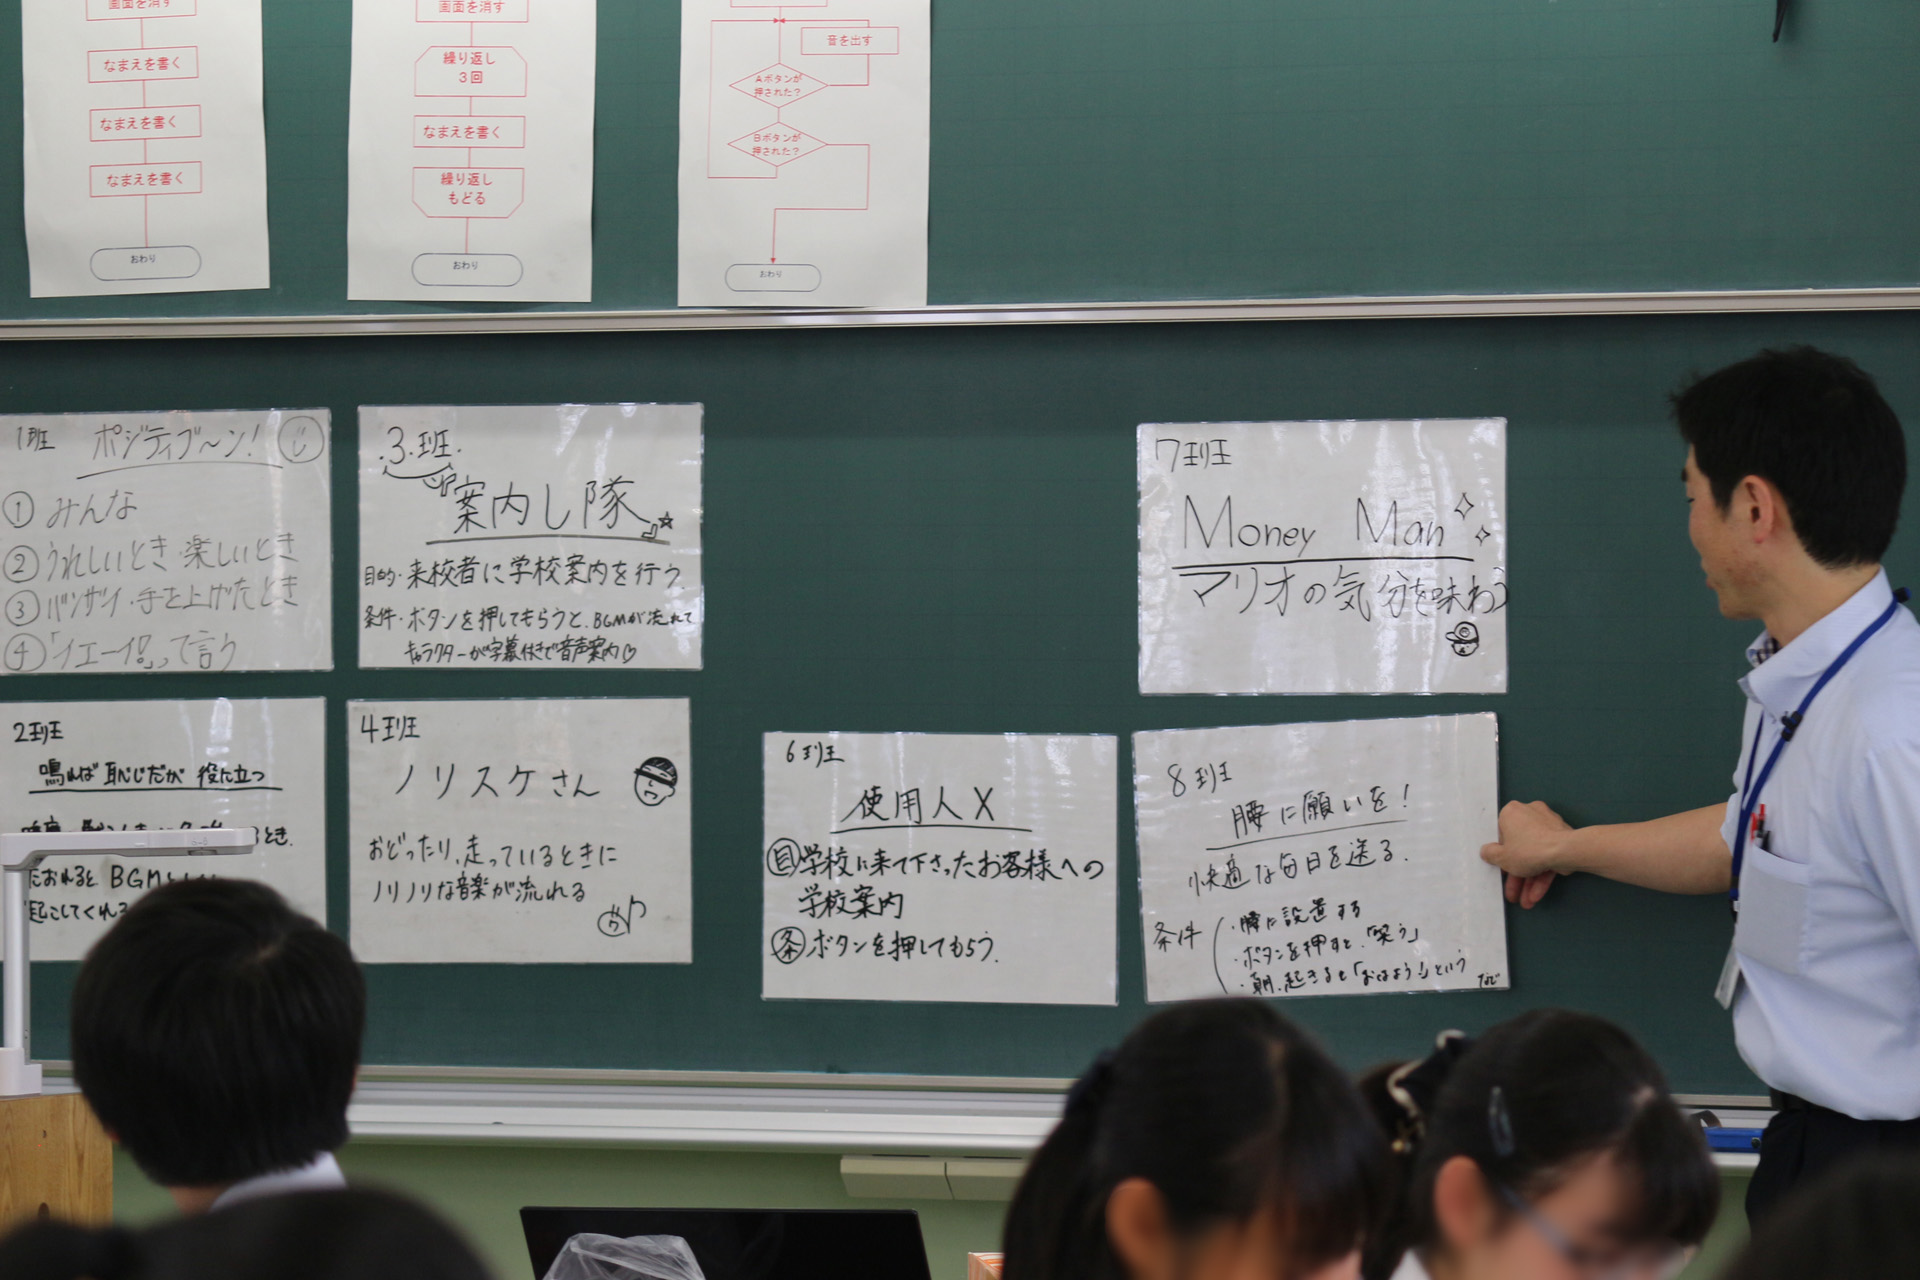 画面を消す
なまえを書く
なまえを書く
なまえを書く
おわり
画面を消す
繰り返し
3回
なまえを書く
繰り返し
もどる
おわり
音を出す
Aボタンが
押された?
Bボタンが
押された?
おわり
1班 ポジティブ〜ン!
① みんな
② うれしいとき・楽しいとき
③ バンザイ・手を上げたとき
④「イエーイ!」って言う
2班
鳴れば恥じだが役に立つ
とき.
たおれると BGM
起こしてくれる
3班.
案内し隊
目的・来校者に学校案内を行う.
条件・ボタンを押してもらうと、BGMが流れて
キャラクターが字幕付きで音声案内♡
4班
ノリスケさん
おどったり、走っているときに
ノリノリな音楽が流れる
6班
使用人X
目 学校に来て下さったお客様への
学校案内
条 ボタンを押してもらう.
7班
Money Man
マリオの気分を味わう
8班
腰に願いを!
快適な毎日を送る.
条件
・腰に設置する
・ボタンを押すと、「笑う」
・朝、起きると「おはよう!」という
など